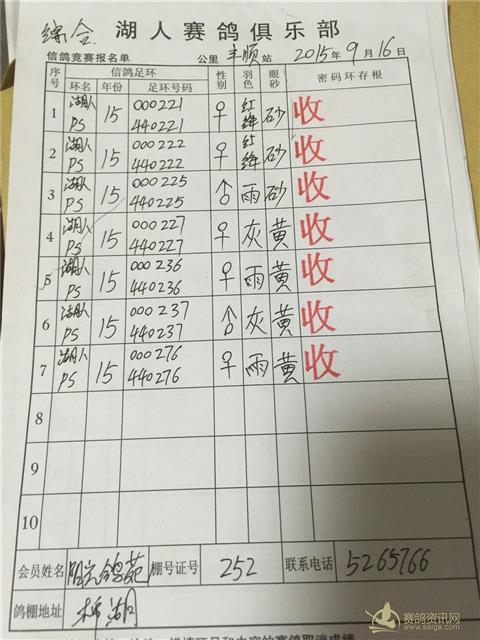 综合 湖人赛鸽俱乐部
信鸽竞赛报名单 公里 丰顺 站 2015年9月16日
序号 信鸽足环 性别 羽色 眼砂 密码环存根
环名 年份 足环号码
1 湖人 PS 15 000221 440221 ♀ 红绛 砂 收
2 湖人 PS 15 000222 440222 ♀ 红绛 砂 收
3 湖人 PS 15 000225 440225 ♂ 雨 砂 收
4 湖人 PS 15 000227 440227 ♀ 灰 黄 收
5 湖人 PS 15 000236 440236 ♀ 雨 黄 收
6 湖人 PS 15 000237 440237 ♂ 灰 黄 收
7 湖人 PS 15 000276 440276 ♀ 雨 黄 收
8
9
10
会员姓名 鸽苑 棚号证号 252 联系电话 5265766
鸽棚地址 湖
赛鸽资讯网
www.saige.com